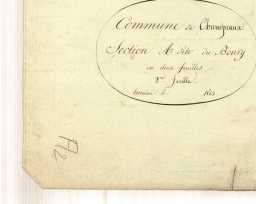 Commune de Champeaux
Section A dite du Bourg
en deux feuilles
2me feuille
terminée le
A2